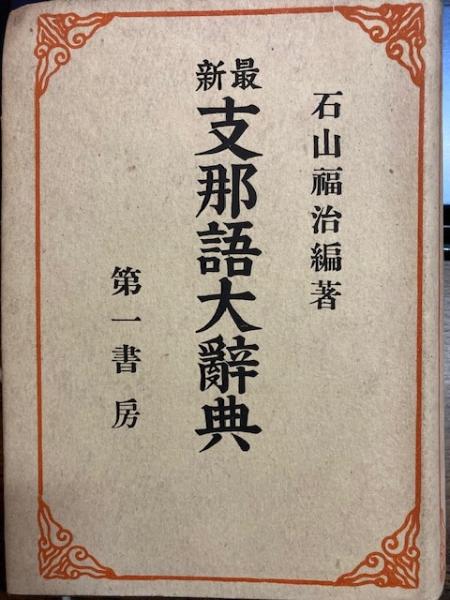 石山福治編著
最新
支那語大辭典
第一書房